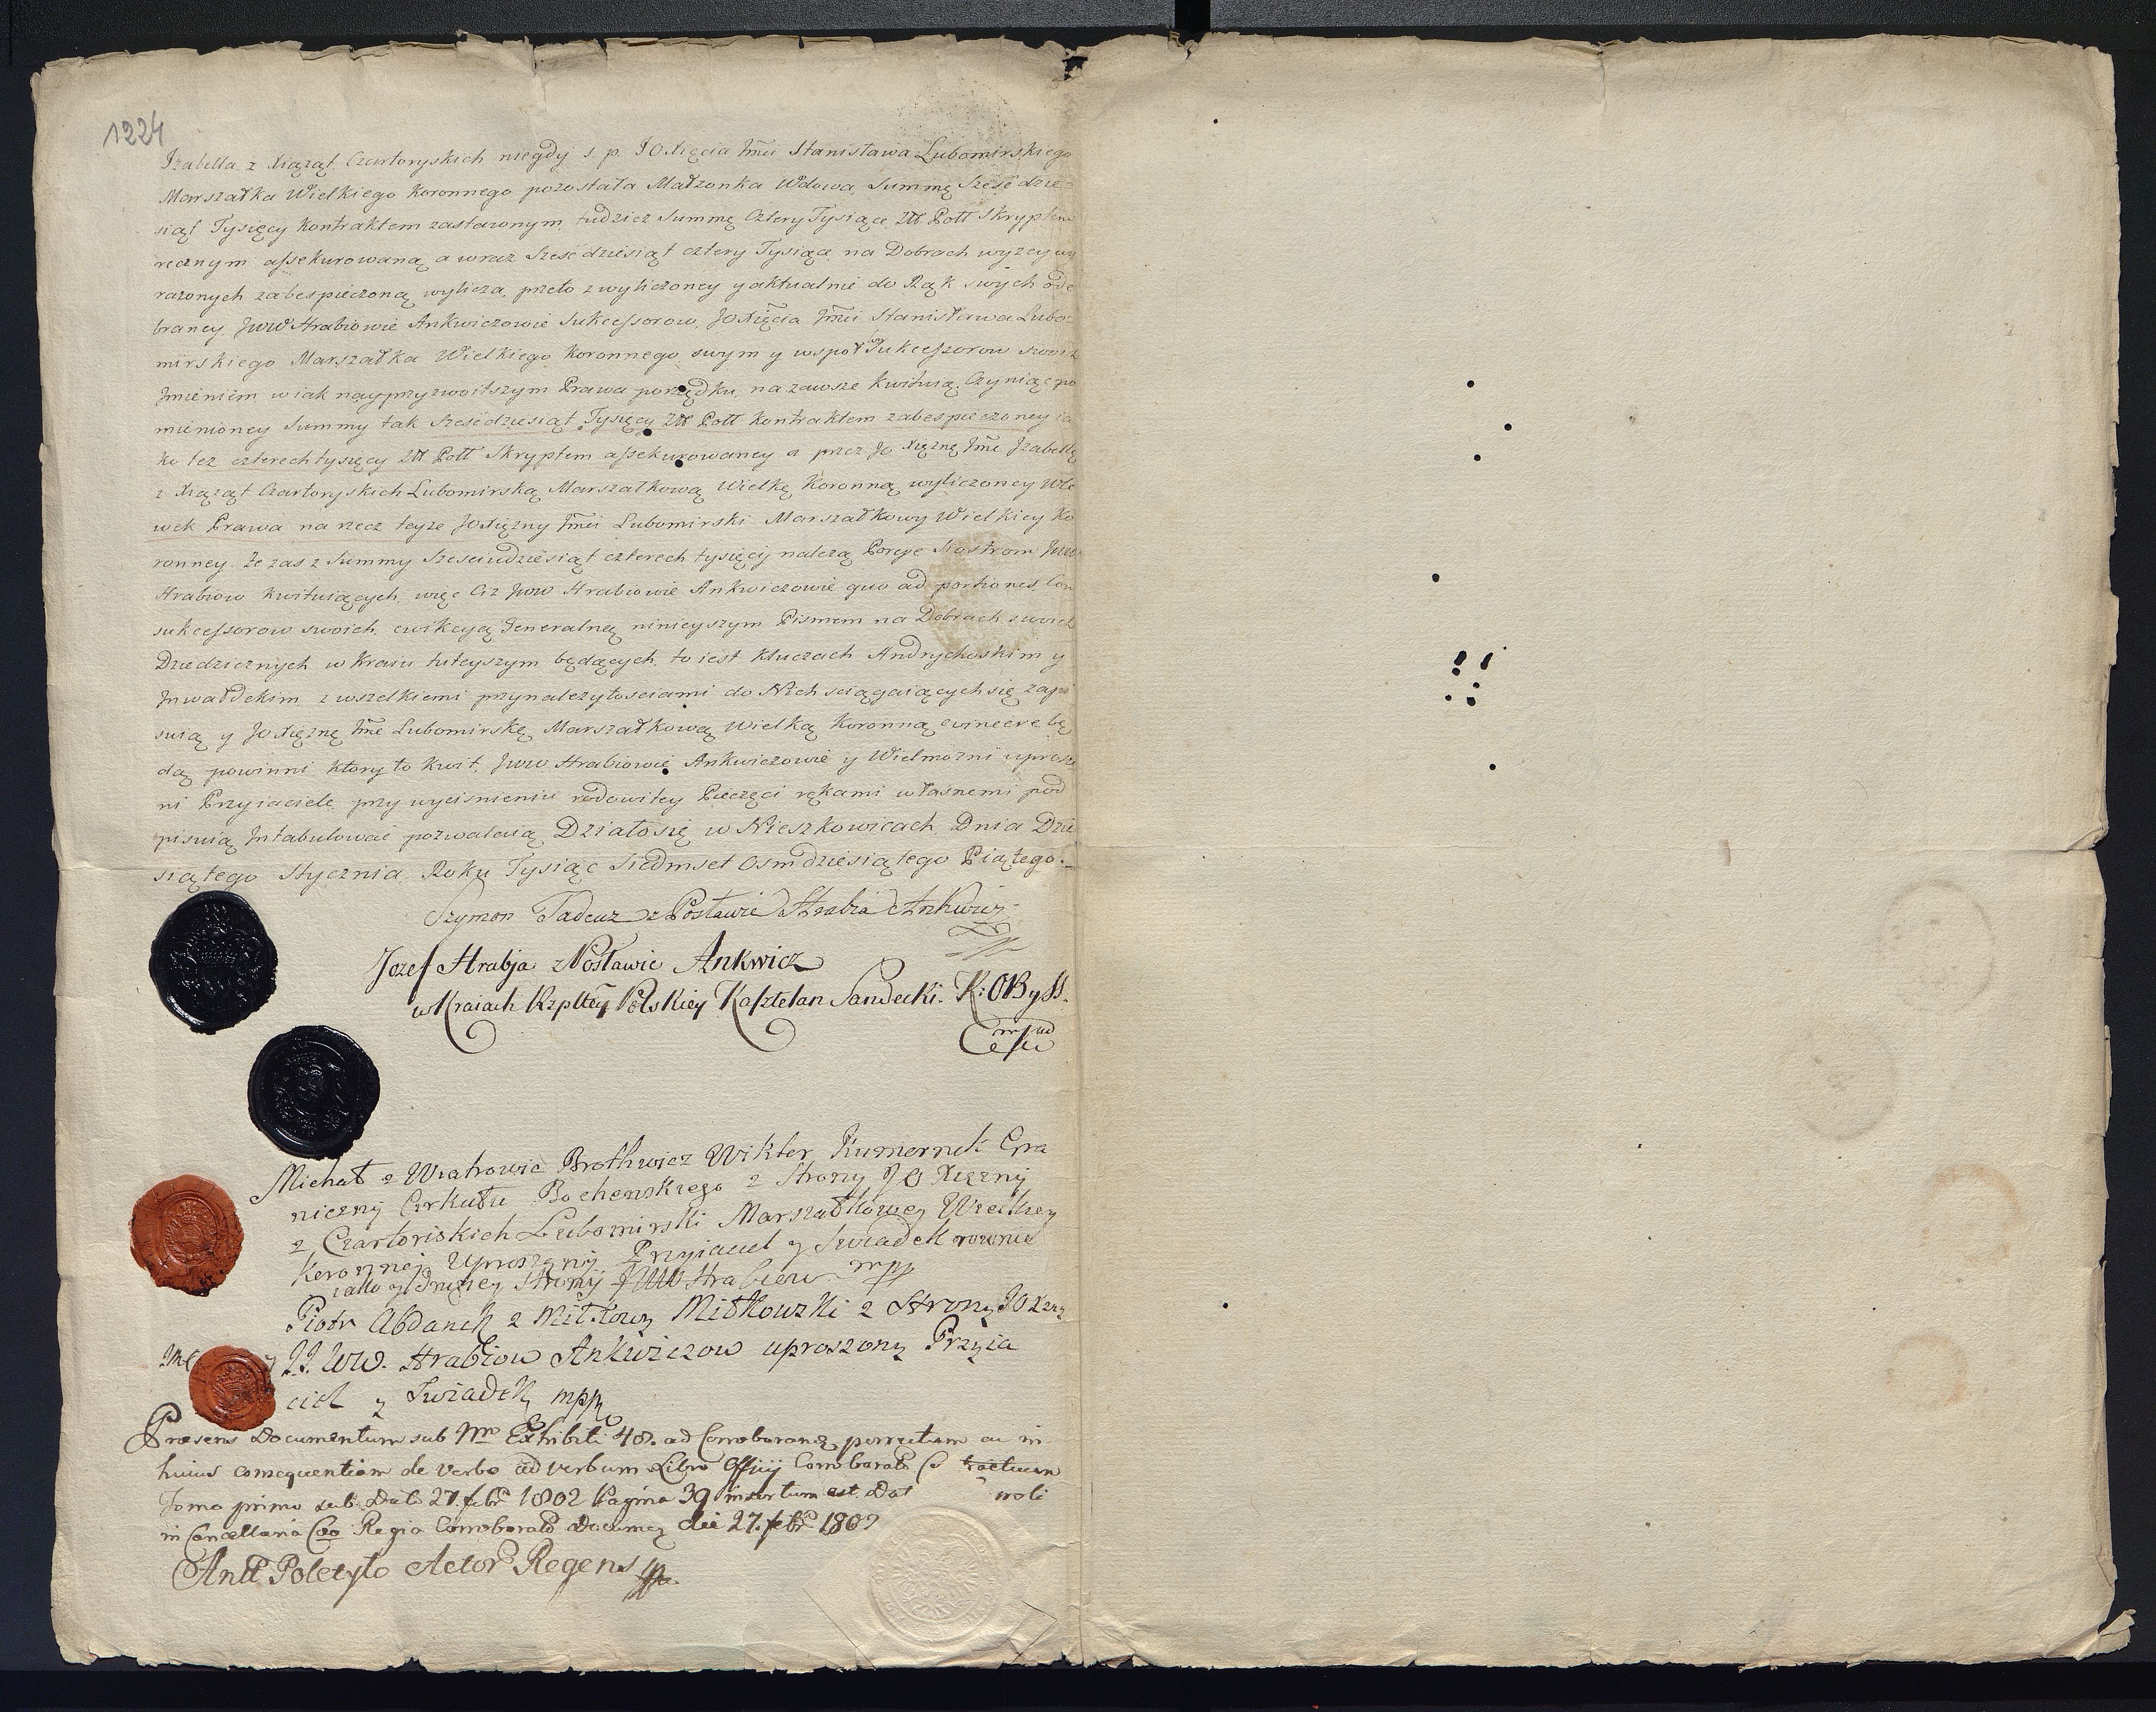 1224
Izabella z Xiąząt Czartoryskich niegdy s. p. JO Xięcia Jmći Stanisława Lubomirskiego
Marszałka Wielkiego Koronnego pozostała Małzonka Wdowa, Summę Sześćdzie-
siąt Tysięcy Kontraktem zastawnym, tudziez Summę Cztery Tysiące Złł Poll Skryptem
ręcznym assekurowaną, a wraz Sześćdziesiąt cztery Tysiące na Dobrach wyzey wy
razonych zabespieczoną wylicza, przeto z wyliczoney y aktualnie do Rąk swych ode
braney, JWW Hrabiowie Ankwiczowie Sukcessorow, JO Xięcia Jmći Stanisława Lubo-
mirskiego Marszałka Wielkiego Koronnego, swym y wspoł Sukcessorow swoich
Jmieniem w iak nayprzyzwoitszym Prawa porządku, na zawsze Kwituią. Czyniąc po
mienioney Summy tak Sześćdziesiąt Tysięcy Złł Poll Kontraktem zabespieczoney ia
ko tez czterech tysięcy Złł Poll Skryptem assekurowaney a przez JO Xięznę Jmć Jzabellę
z Xiąząt Czartoryskich Lubomirską Marszałkową Wielką Koronną wyliczoney Wle
wek Prawa na rzecz teyze JO Xięzny Jmći Lubomirski Marszałkowy Wielkiey Ko
ronney. Ze zas z Summy Sześciudziesiąt czterech tysięcy nalezą Porcye Siostrom JWW
Hrabiow kwituiących, więc Ciz JWW Hrabiowie Ankwiczowie quo ad portiones Con
sukcessorow swoich, ewikcyą Generalną ninieyszym Pismem na Dobrach swoich
Dziedzicznych w Kraiu tuteyszym będących, to iest Kluczach Andrychoskim y
Jnwałdskim, z wszelkiemi przynalezytosciami do Nich sciągaiącychsię zapi
suią y JO Xięznę Jmć Lubomirskę Marszałkową Wielką Koronną evincere bę
dą powinni, ktory to Kwit, JWW Hrabiowie Ankwiczowie y Wielmozni uprosze
ni Przyiaciele przy wycisnieniu rodowitey Pieczęci rękami własnemi pod
pisuią Jntabulować pozwalaią Działosię w Nieszkowicach Dnia Dzie
siątego Stycznia, Roku Tysiąc Siedmset Osmdziesiątego Piątego.
Szymon Tadeusz z Posławic Hrabia Ankwicz
Jozef Hrabja z Posławic Ankwicz
w Kraiach Rzpltey Polskiey Kasztelan Sandecki. K: OB y SS.
Michał z Wiatrowic Brothwicz Wikter Kumornik Gra
niczny Cyrkułu Bochenskiego z Strony JO Xięzny
z Czartoriskich Lubomirski Marszałkowey Wielkiey
Koronnej Uproszony Przyiaciel y Swiadek rownie
iako y drugiey Strony JWW Hrabiow mpp
Piotr Abdank z Mitkowy Mitkowzki z Strony JO Xzny
JJ. WW. Hrabiow Ankwiczow uproszony Przyia
ciel y Swiadek mpp
Præsens Documentum sub Nro Exhibiti 48. ad Corroborand porrectum ac in
huius consequentiam de verbo ad verbum Libro Officij Corroborato
Tomo primo sub Dato 27. febr 1802 Pagina 39 insertum est. Dat
in Cancellaria Cæo Regia Corroborato Docum die 27. febr 1802
Ant Poletyło Actor Regens mpp